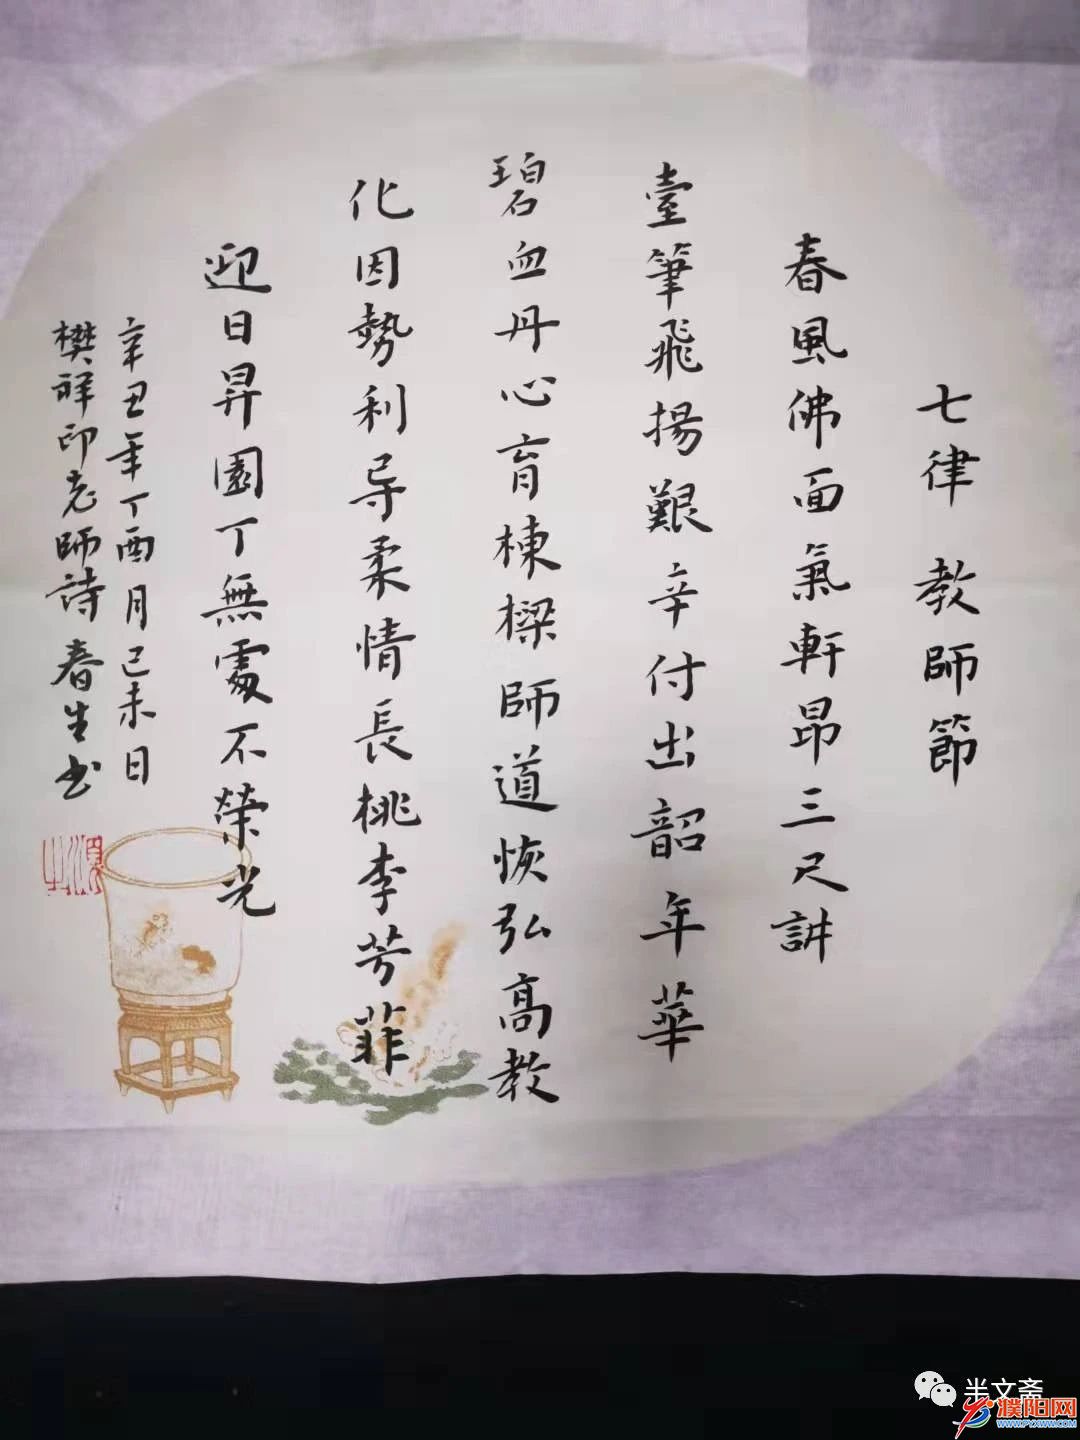 七律 教師節
春風佛面氣軒昂三尺講
臺筆飛揚艱辛付出韶年華
碧血丹心育棟樑師道恢弘高教
化因勢利导柔情長桃李芳菲
迎日昇園丁無處不榮光
辛丑年丁酉月己未日
樊祥印老師詩春生书
半文斋
濮阳网
WWW.PYXWW.COM